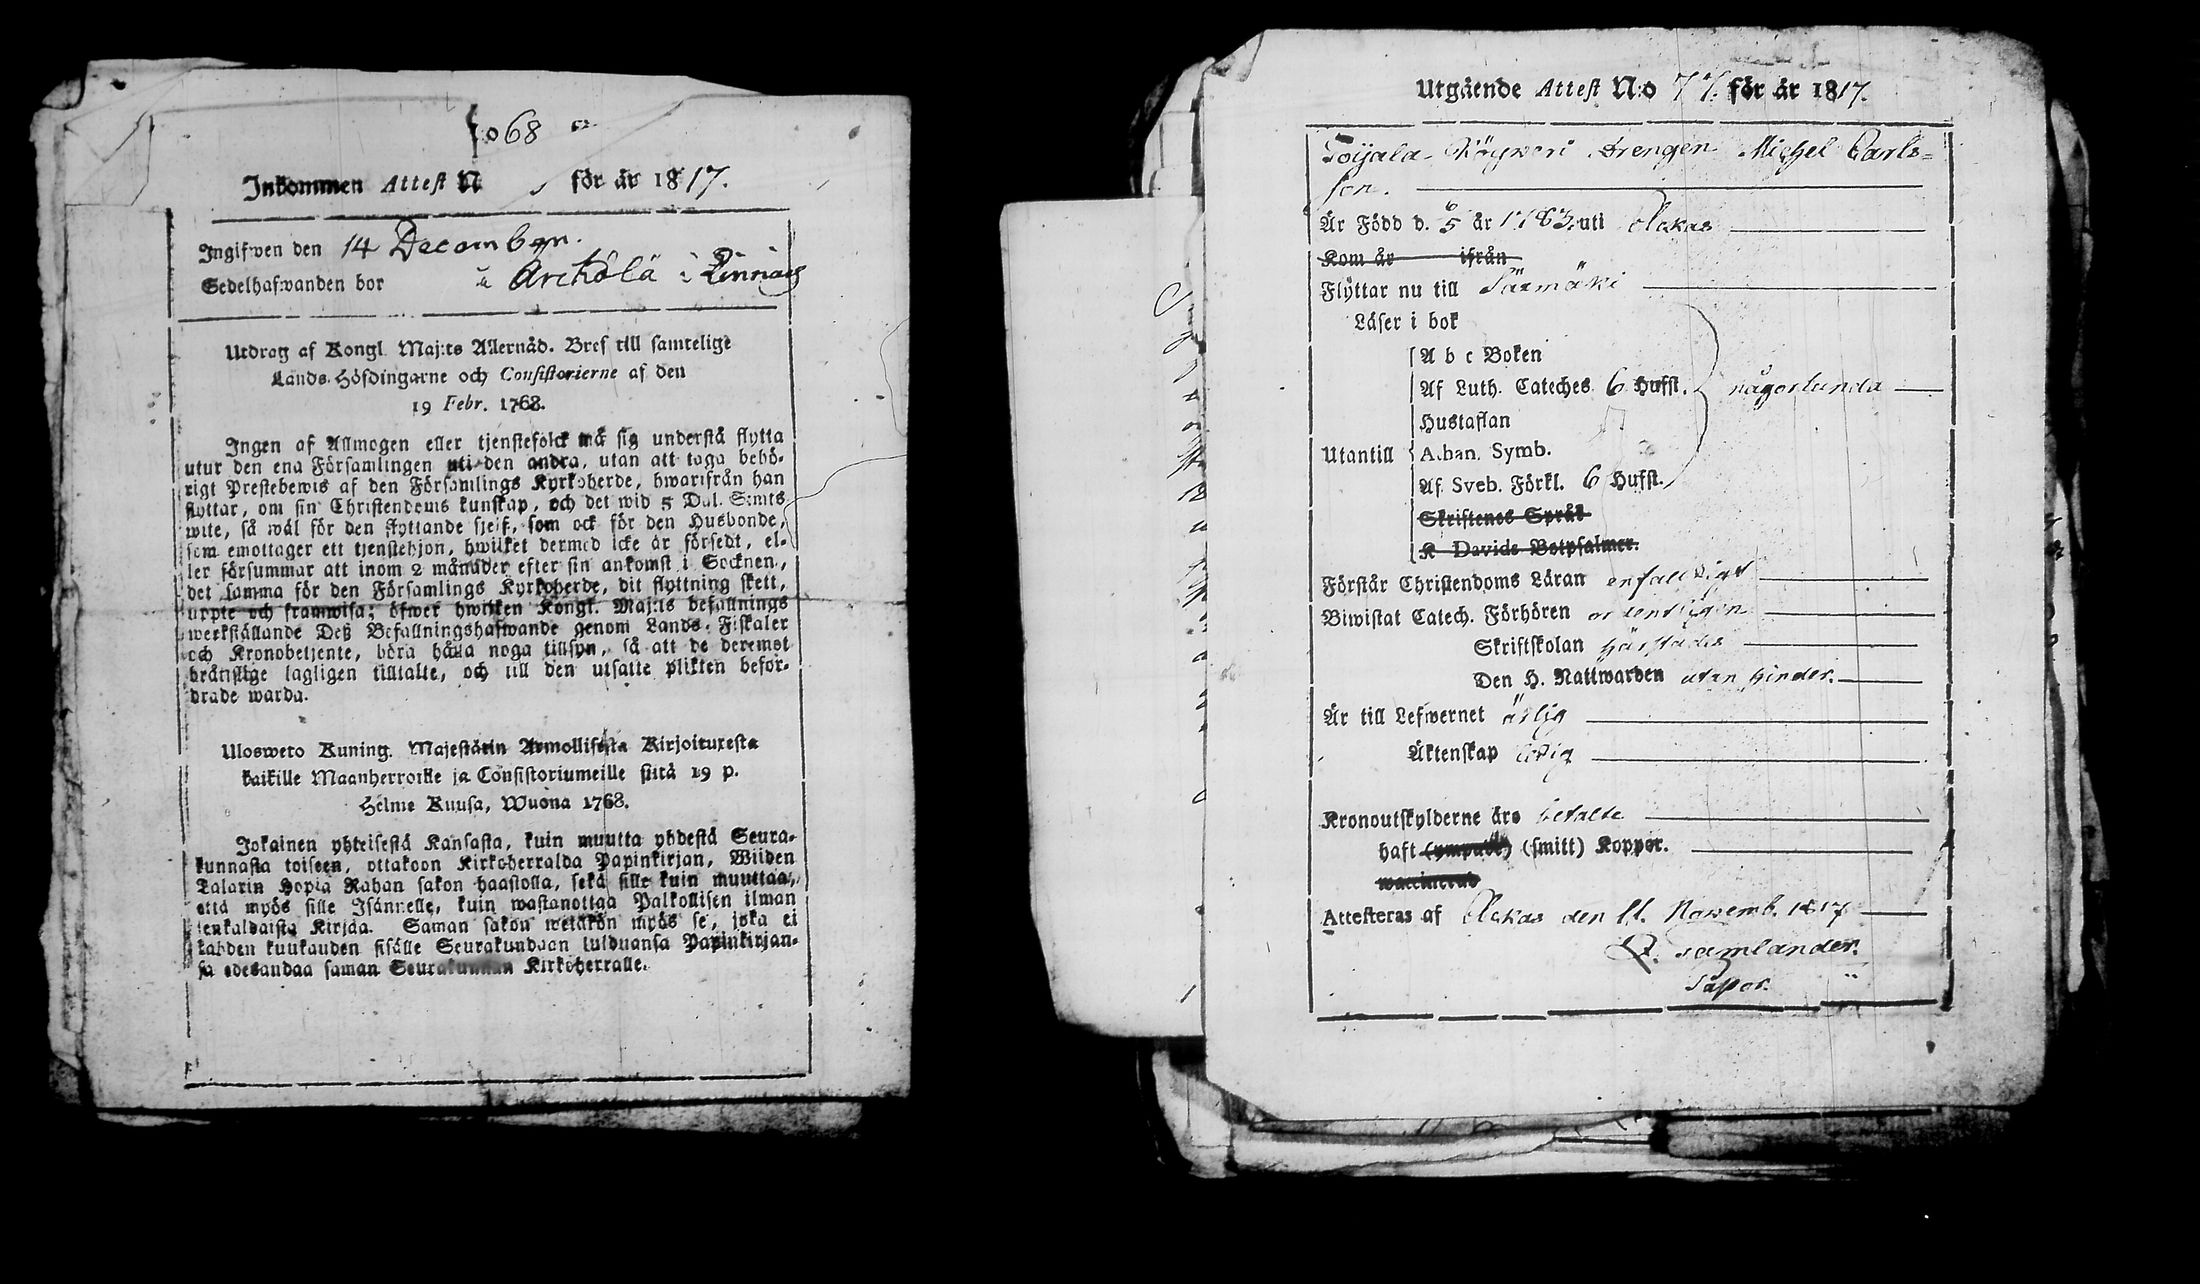 068
Inkommen Attest N för år 1817.
Ingifwen den 14 December.
Sedelhafwanden bor i Arckölä i
Utdrag af Kongl. Maj:ts Allernåd. Bref till samtelige
Lands-Höfdingarne och Consistorierne af den
19 Febr. 1768.
Ingen af Allmogen eller tjenstefolck må sig understå flytta
utur den ena Församlingen uti den andra, utan att taga behö-
rigt Prestebewis af den Församlings Kyrkoherde, hwarifrån han
flyttar, om sin Christendoms kunskap, och det wid 5 Dal. S:mts
wite, så wäl för den flyttande sjelf, som ock för den Husbonde,
som emottager ett tjenstehjon, hwilket dermed icke är försedt, el-
ler försummar att inom 2 månader efter sin ankomst i Socknen,
det samma för den Församlings Kyrkoherde, dit flyttning skett,
uppte och framwisa; öfwer hwilken Kongl. Maj:ts befallnings
werkställande Deß Befallningshafwande genom Lands-Fiskaler
och Kronobetjente, böra hålla noga tillsyn, så att de deremot
bråtslige lagligen tilltalte, och till den utsatte plikten befor-
drade warda.
Ulosweto Kuning. Majestätin Armollisesta Kirjoituxesta
kaikille Maanherroille ja Consistoriumeille siitä 19 p.
Helme Kuusa, Wuona 1768.
Jokainen yhteisestä Kansasta, kuin muutta yhdestä Seura-
kunnasta toiseen, ottakoon Kirkoherralda Papinkirjan, Wiiden
Talarin Hopia Rahan sakon haastolla, sekä sille kuin muuttaa,
että myös sille Isännelle, kuin wastanottaa Palkollisen ilman
senkaldaista Kirjaa. Saman sakon wetäkön myös se, joka ei
kahden kuukauden sisälle Seurakundaan tulduansa Papinkirjan-
sa edesandaa saman Seurakunnan Kirkoherralle.
Utgående Attest N:o 77. för år 1817.
Toijala Drengen Michel Carls=
son.
Är Född d. 5 år 1783 uti Ackas
Kom år ifrån
Flyttar nu till Särmäki
Läser i bok
A b c Boken
Af Luth. Cateches 6 Hufst. någorlunda
Hustaflan
Utantill Athan. Symb.
Af Sveb. Förkl. 6 Hufst.
Skriftenes Språk
K Davids Botpsalmer.
Förstår Christendoms Läran enfalldigt
Biwistat Catech. Förhören ordentligen
Skriftskolan härstädes
Den H. Nattwarden utan hinder.
Är till Lefwernet ärlig
Äktenskap ledig
Kronoutskylderne äro betalte
haft (smitt) Koppor.
Attesteras af Ackas den 11. Novemb. 1817
Samlander.
Pastor.